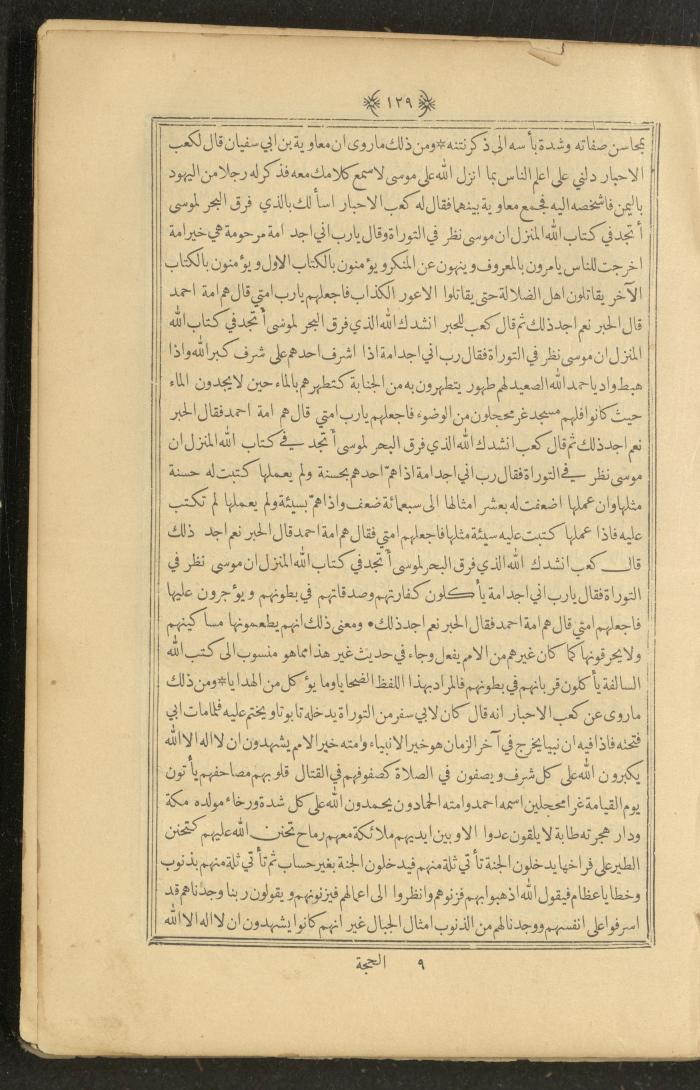 ١٢٩
بمحاسن صفاته وشدة بأسه الى ذكرنتنه * ومن ذلك ماروى ان معاوية بن ابي سفيان قال لكعب
الاحبار دلني على اعلم الناس بما انزل الله على موسى لاسمع كلامك معه فذكر له رجلا من اليهود
باليمن فاشخصه اليه فجمع معاوية بينهما فقال له كعب الاحبار اسألك بالذي فرق البحر لموسى
أتجد في كتاب الله المنزل ان موسى نظر في التوراة وقال يارب اني اجد امة مرحومة هي خير امة
اخرجت للناس يامرون بالمعروف وينهون عن المنكر ويؤمنون بالكتاب الاول ويؤمنون بالكتاب
الآخر يقاتلون اهل الضلالة حتى يقاتلوا الاعور الكذاب فاجعلهم يارب امتي قال هم امة احمد
قال الحبر نعم اجد ذلك ثم قال كعب للحبر انشدك الله الذي فرق البحر لموسى أتجد في كتاب الله
المنزل ان موسى نظر في التوراة فقال رب اني اجد امة اذا اشرف احدهم على شرف كبر الله واذا
هبط واديا حمد الله الصعيد لهم طهور يتطهرون به من الجنابة كتطهرهم بالماء حين لايجدون الماء
حيث كانوا فلهم مسجد غر محجلون من الوضوء فاجعلهم يارب امتي قال هم امة احمد فقال الحبر
نعم اجد ذلك ثم قال كعب انشدك الله الذي فرق البحر لموسى أتجد في كتاب الله المنزل ان
موسى نظر في التوراة فقال رب اني اجد امة اذا همّ احدهم بحسنة ولم يعملها كتبت له حسنة
مثلها وان عملها اضعفت له بعشر امثالها الى سبعمائة ضعف واذا همّ بسيئة ولم يعملها لم تكتب
عليه فاذا عملها كتبت عليه سيئة مثلها فاجعلهم امتي فقال هم امة احمد قال الحبر نعم اجد ذلك
قال كعب انشدك الله الذي فرق البحر لموسى أتجد في كتاب الله المنزل ان موسى نظر في
التوراة فقال يارب اني اجد امة يأكلون كفارتهم وصدقاتهم في بطونهم ويؤجرون عليها
فاجعلهم امتي قال هم امة احمد فقال الحبر نعم اجد ذلك • ومعنى ذلك انهم يطعمونها مساكينهم
ولا يحرقونها كما كان غيرهم من الامم يفعل وجاء في حديث غير هذا مما هو منسوب الى كتب الله
السالفة يأكلون قربانهم في بطونهم فالمراد بهذا اللفظ الضحايا وما يؤكل من الهدايا * ومن ذلك
ماروى عن كعب الاحبار انه قال كان لابي سفر من التوراة يدخله تابوتا ويختم عليه فلما مات ابي
فتحته فاذا فيه ان نبيا يخرج في آخر الزمان هو خير الانبياء وامته خير الامم يشهدون ان لا اله الا الله
يكبرون الله على كل شرف ويصفون في الصلاة كصفوفهم في القتال قلوبهم مصاحفهم يأتون
يوم القيامة غرا محجلين اسمه احمد وامته الحمادون يحمدون الله على كل شدة ورخاء مولده مكة
ودار هجرته طابة لا يلقون عدوا الا وبين ايديهم ملائكة معهم رماح تحنن الله عليهم كتحنن
الطير على فراخها يدخلون الجنة تأتي ثلة منهم فيدخلون الجنة بغير حساب ثم تأتي ثلة منهم بذنوب
وخطايا عظام فيقول الله اذهبوا بهم فزنوهم وانظروا الى اعمالهم فيزنونهم ويقولون ربنا وجدناهم قد
اسرفوا على انفسهم ووجدنا لهم من الذنوب امثال الجبال غير انهم كانوا يشهدون ان لا اله الا الله
٩ الحجة